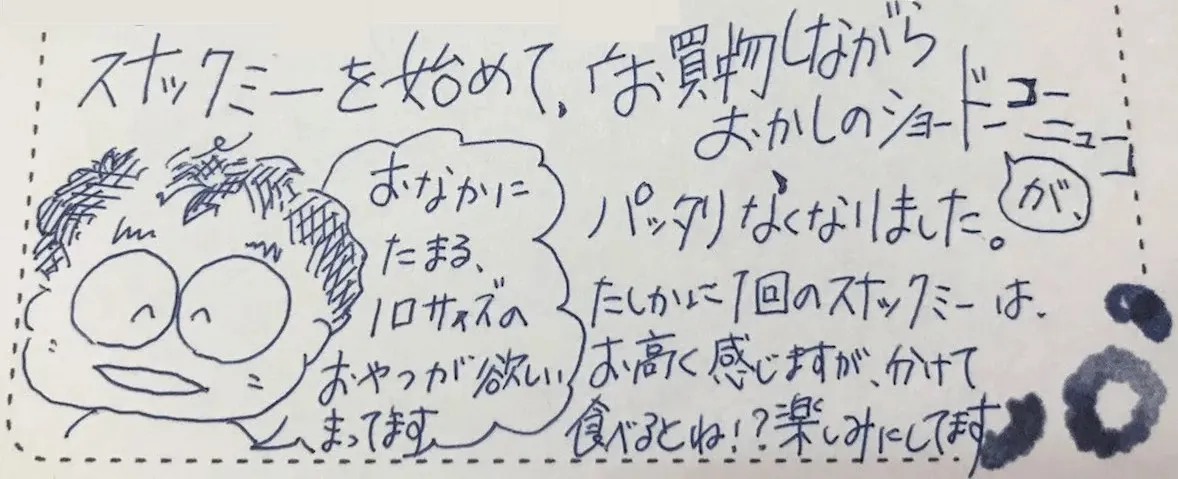 スナックミーを始めて、お買物しながら
おかしのショードーコーニュー
が、
パッタリなくなりました。
たしかに1回のスナックミーは、
お高く感じますが、分けて
食べるとね!?楽しみにしてます
おなかに
たまる、
1口サイズの
おやつが欲しい
まってます